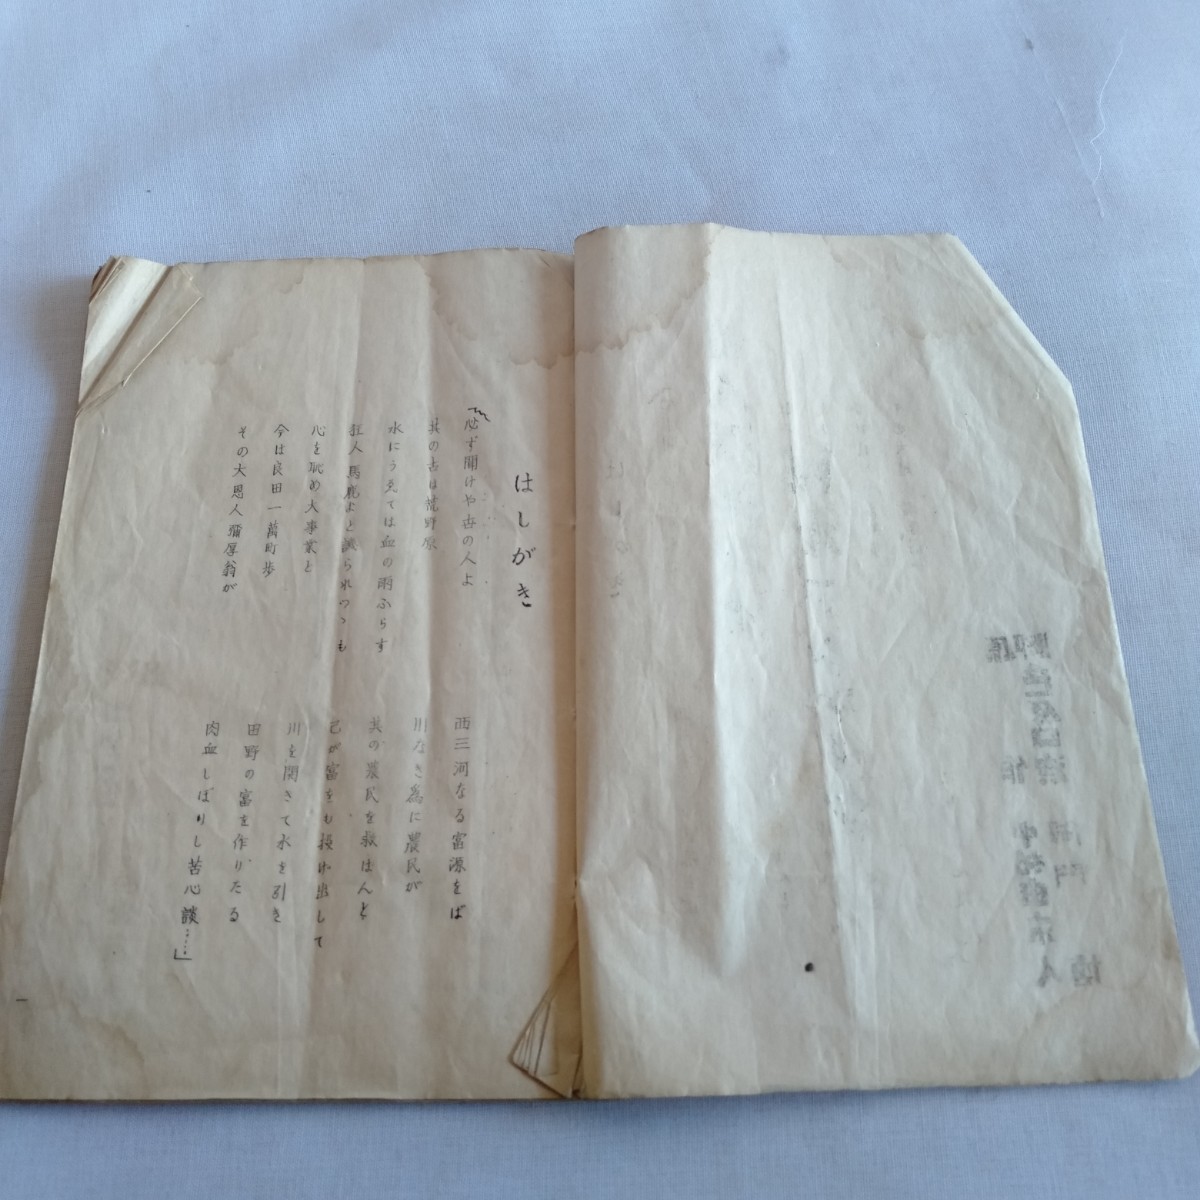 はしがき
必ず聞けや世の人よ
西三河なる富源をば
其の古は荒野原
川なき為に農民が
水にうゑては血の雨ふらす
其の農民を救はんと
狂人馬鹿よと譏られつゝも
己が富をも投げ出して
心を砒め大事業と
川を開きて水を引き
今は良田一萬町歩
田野の富を作りたる
その大恩人彌厚翁が
肉血しぼりし苦心談……」
一